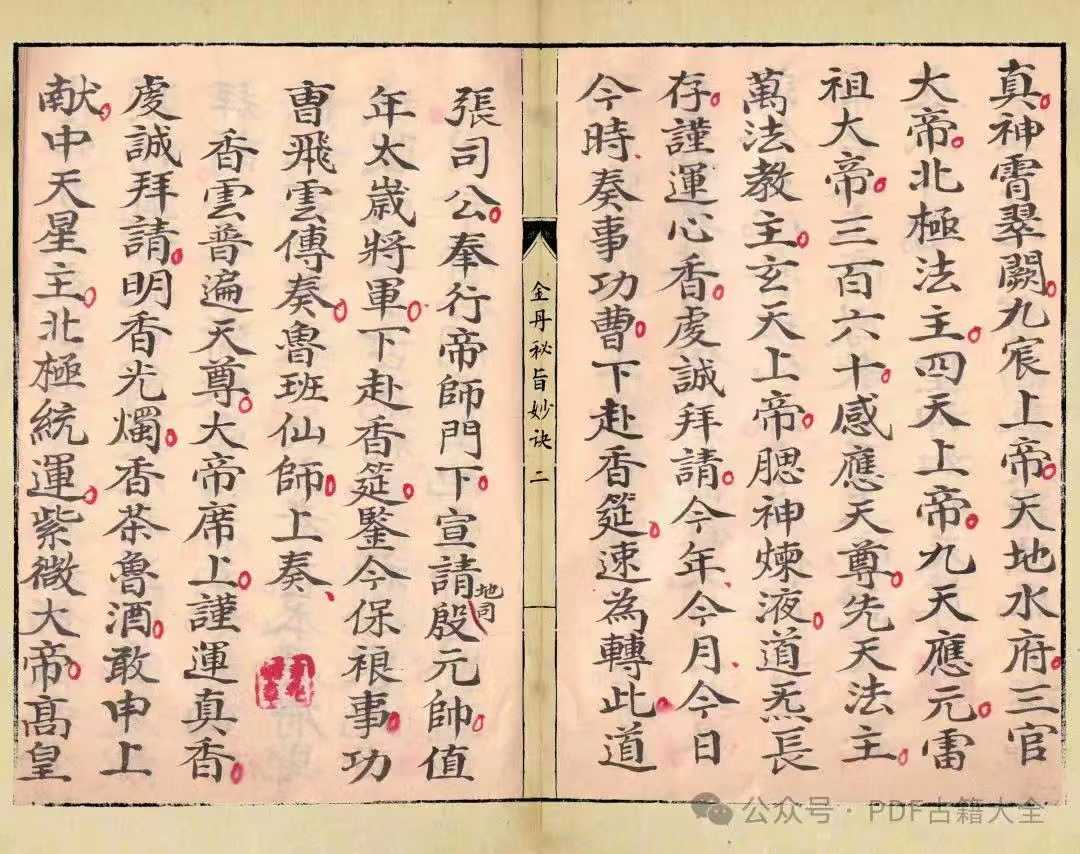 真神霄翠闕九宸上帝天地水府三官
大帝北極法主四天上帝九天應元雷
祖大帝三百六十感應天尊先天法主
萬法教主玄天上帝腮神煉液道炁長
存謹運心香虔誠拜請今年今月今日
今時奏事功曹下赴香筵速為轉此道
金丹秘旨妙诀 二
張司公奉行帝師門下宣請地司殷元帥值
年太歲將軍下赴香筵鑒今保禄事功
曹飛雲傳奏魯班仙師上奏
香雲普遍天尊大帝席上謹運真香
虔誠拜請明香光燭香茶魯酒敢申上
献中天星主北極統運紫微大帝高皇
公众号·PDF古籍大全